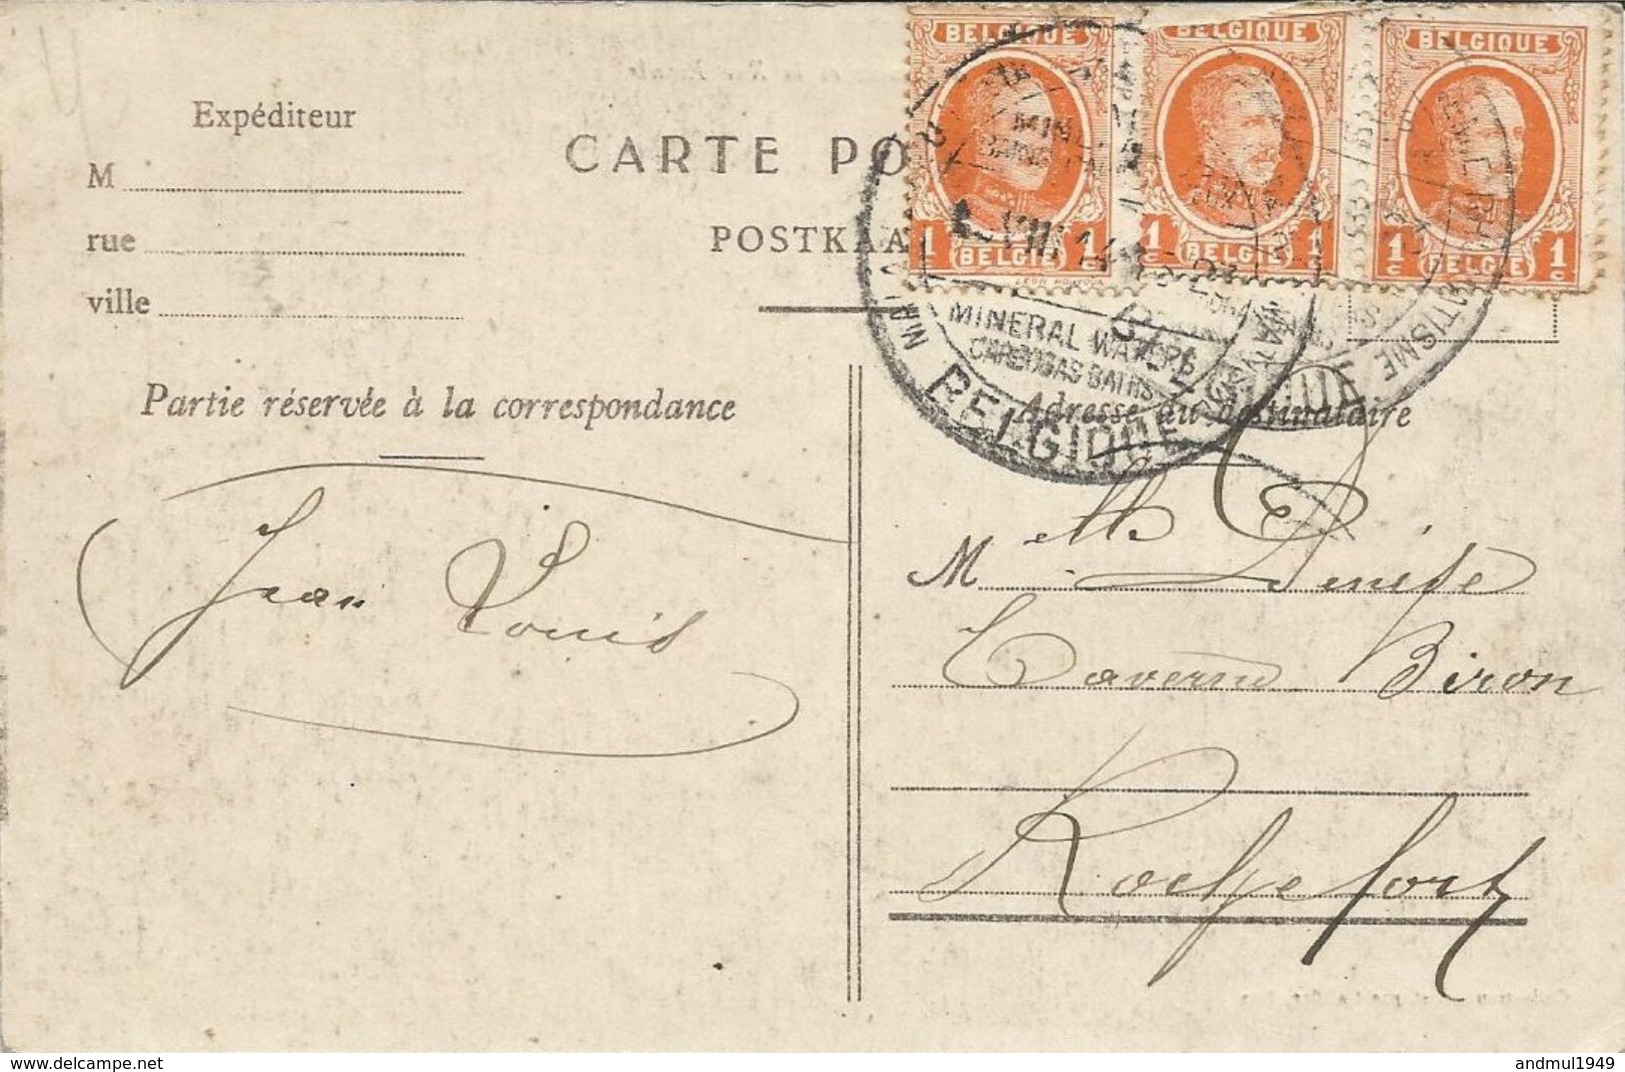 Expéditeur
M
rue
ville
CARTE PO
POSTKAA
BELGIQUE BELGIQUE BELGIQUE
1c 1c 1c 1c 1c 1c
BELGIË BELGIË BELGIË
MINERAL WATERS
CARBOGAS BATHS
BELGIQUE
Partie réservée à la correspondance
Adresse du destinataire
Jean Louis
M elle Denise
Taverne Biron
Rochefort
andmul1949